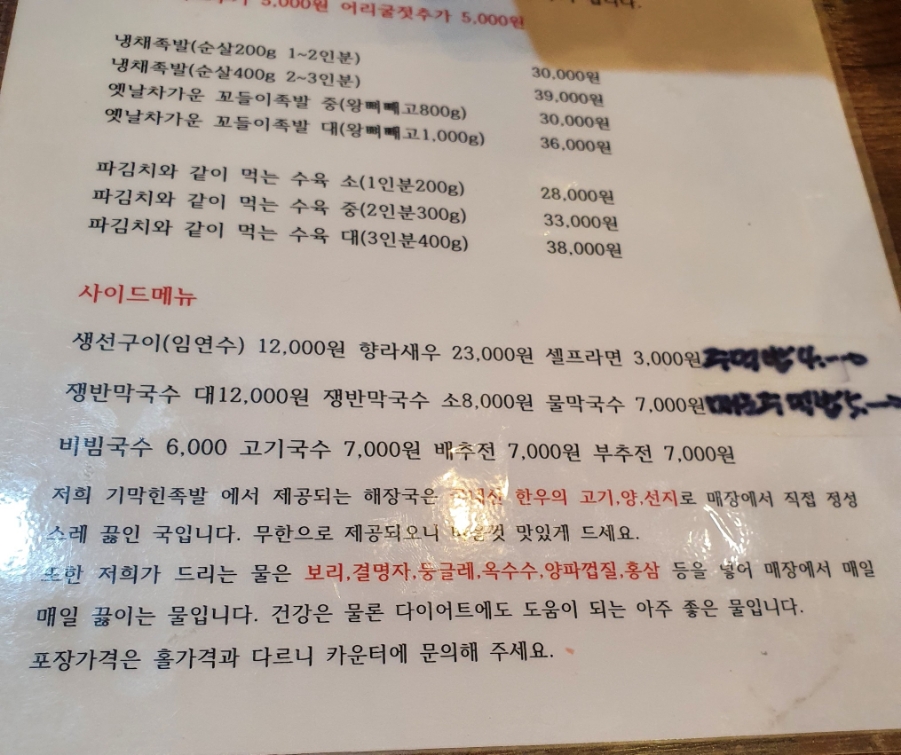 5,000원 어리굴젓추가 5,000원
냉채족발(순살200g 1~2인분) 30,000원
냉채족발(순살400g 2~3인분) 39,000원
옛날차가운 꼬들이족발 중(왕뼈빼고800g) 30,000원
옛날차가운 꼬들이족발 대(왕뼈빼고1,000g) 36,000원
파김치와 같이 먹는 수육 소(1인분200g) 28,000원
파김치와 같이 먹는 수육 중(2인분300g) 33,000원
파김치와 같이 먹는 수육 대(3인분400g) 38,000원
사이드메뉴
생선구이(임연수) 12,000원 향라새우 23,000원 셀프라면 3,000원 주먹밥 4.--0
쟁반막국수 대12,000원 쟁반막국수 소8,000원 물막국수 7,000원
비빔국수 6,000 고기국수 7,000원 배추전 7,000원 부추전 7,000원
저희 기막힌족발 에서 제공되는 해장국은 한우의 고기,양,선지로 매장에서 직접 정성
스레 끓인 국입니다. 무한으로 제공되오니 마음껏 맛있게 드세요.
또한 저희가 드리는 물은 보리,결명자,둥글레,옥수수,양파껍질,홍삼 등을 넣어 매장에서 매일
매일 끓이는 물입니다. 건강은 물론 다이어트에도 도움이 되는 아주 좋은 물입니다.
포장가격은 홀가격과 다르니 카운터에 문의해 주세요.